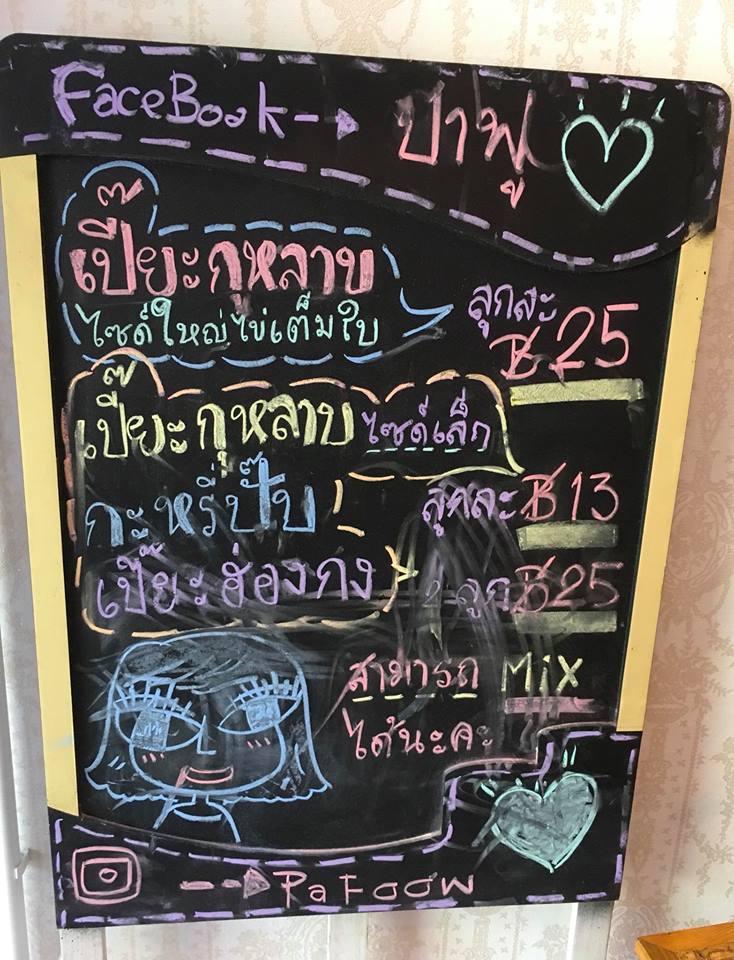 FaceBook → ป่าฟู
เปี๊ยะกุหลาบ
ไซด์ใหญ่ไข่เต็มใบ
ลูกละ
฿25
เปี๊ยะกุหลาบ ไซด์เล็ก
กะหรี่ปั๊บ
ลูกละ ฿13
เปี๊ยะฮ่องกง
2 ลูก ฿25
สามารถ Mix
ได้นะคะ
→ PaFoow